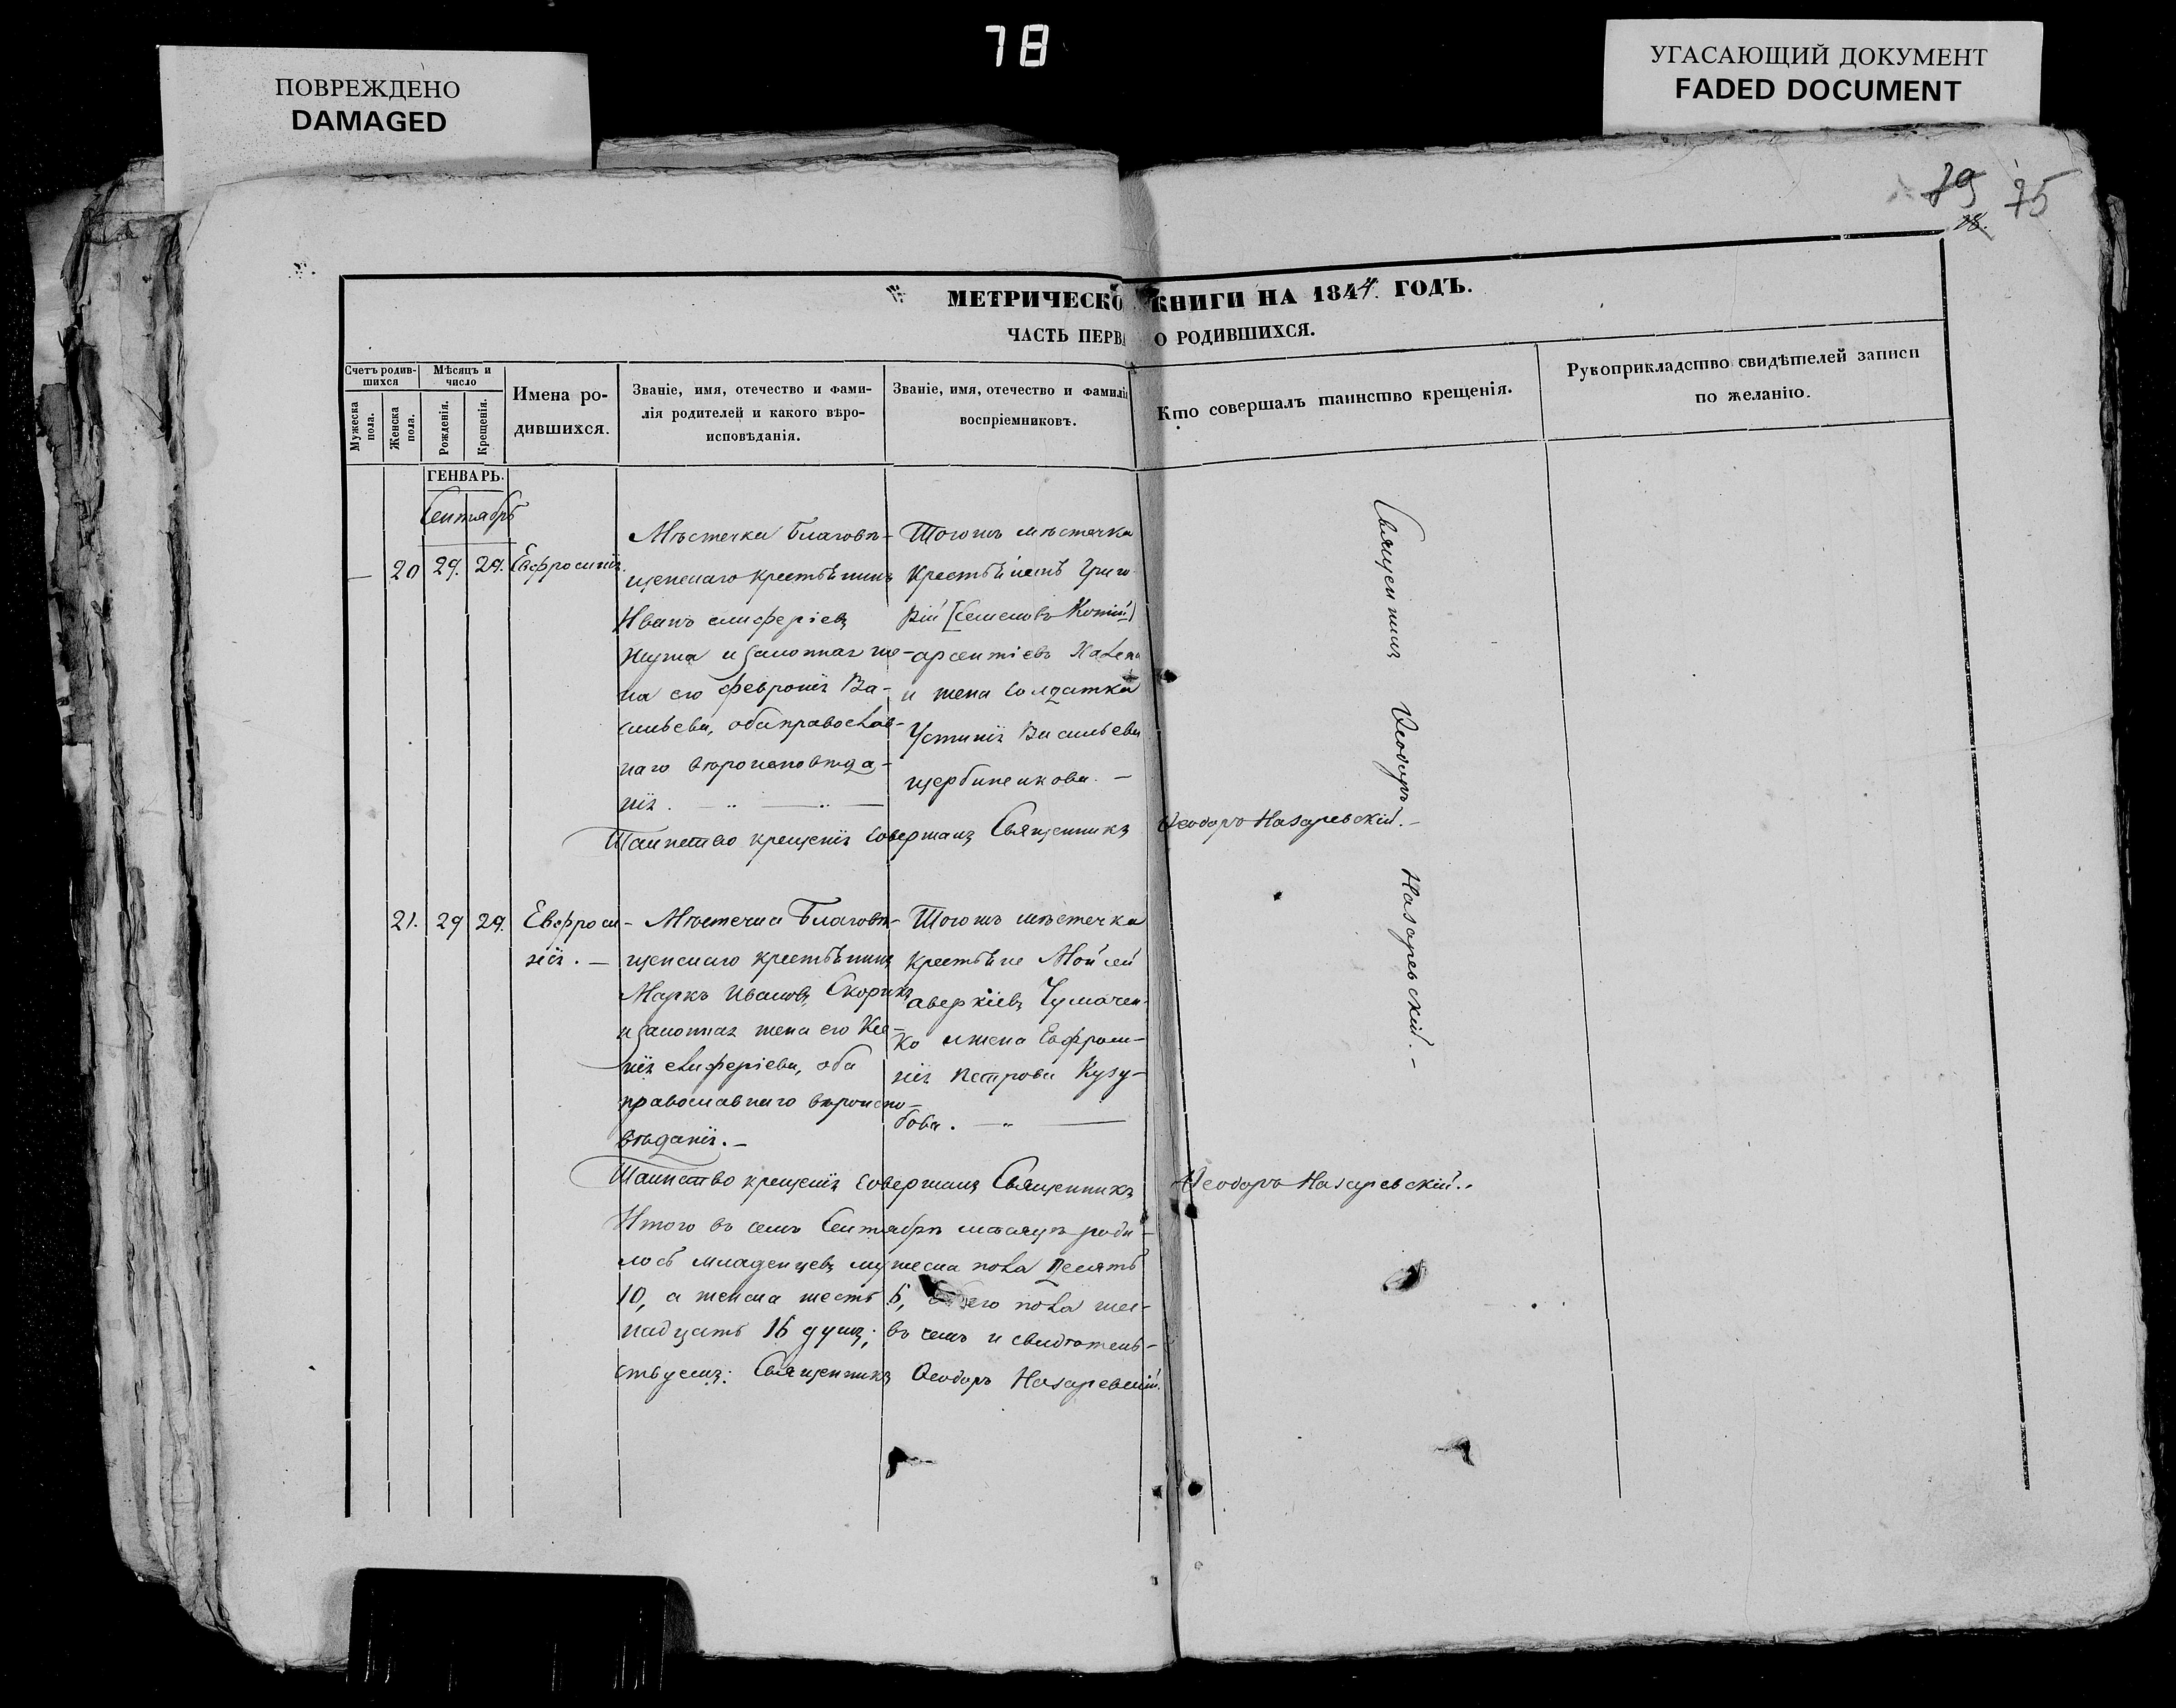 78
ПОВРЕЖДЕНО
DAMAGED
УГАСАЮЩИЙ ДОКУМЕНТ
FADED DOCUMENT
75
МЕТРИЧЕСКО КНИГИ НА 1844. ГОДЪ.
ЧАСТЬ ПЕРВА О РОДИВШИХСЯ.
Счетъ родив-
шихся
Мужеска
пола.
Женска
пола.
Мѣсяцъ и
число
Рожденія.
Крещенія.
Имена ро-
дившихся.
Званіе, имя, отечество и фами-
лія родителей и какого вѣро-
исповѣданія.
Званіе, имя, отечество и фамилія
воспріемниковъ.
Кто совершалъ таинство крещенія.
Рукоприкладство свидѣтелей записи
по желанію.
ГЕНВАРЬ.
Сентябрь
— 20 29. 29. Евфросинія.
Мѣстечка Благовѣ-
щенскаго крестьянинъ
Иванъ елиферіевъ
и законная же-
на его Февронія Ва-
сильева, оба православ-
наго вѣроисповѣда-
нія.
Тогожъ мѣстечка
крестьянинъ Григо
рій [Семеновъ
арсентіевъ
и жена солдатка
Устинія Васильева
щербиненкова. —
Таинство крещенія совершалъ Священникъ Ѳеодоръ Назаревскій. —
Священникъ Ѳеодоръ Назаревскій. —
21. 29 29. Евфроси-
нія. —
Мѣстечка Благовѣ-
щенскаго крестьянинъ
Маркъ Ивановъ Скорикъ
и законная жена его Ксе-
нія елиферіева, оба
православнаго вѣроиспо-
вѣданія. —
Тогожъ мѣстечка
крестьяне Моисей
аверкіевъ Чумачен-
ко и жена Евфроси-
нія петрова Кузу-
бова. —
Таинство крещенія совершалъ Священникъ Ѳеодоръ Назаревскій.
Итого въ семъ Сентябрѣ мѣсяцѣ роди-
лось младенцевъ мужеска пола десять
10, а женска шесть 6, обоего пола шес-
надцать 16 душъ; въ чемъ и свидѣтель-
ствуемъ: Священникъ Ѳеодоръ Назаревскій.